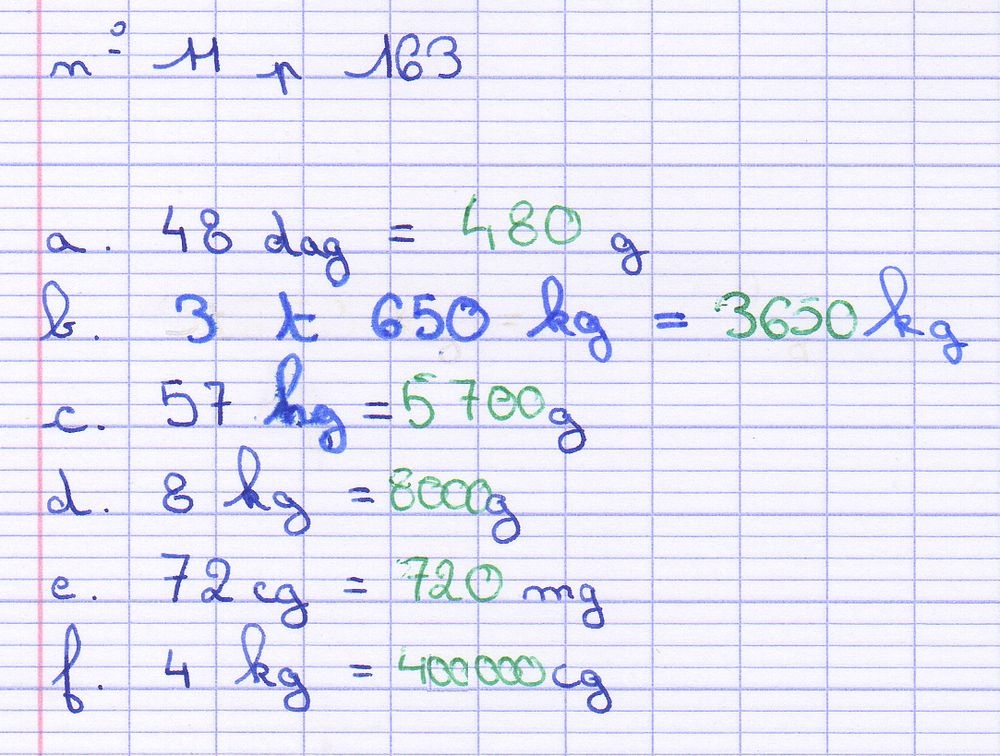 n° 11 p 163
a. 48 dag = 480 g
b. 3 t 650 kg = 3650 kg
c. 57 hg = 5 700 g
d. 8 kg = 8000 g
e. 72 cg = 720 mg
f. 4 kg = 400 000 cg